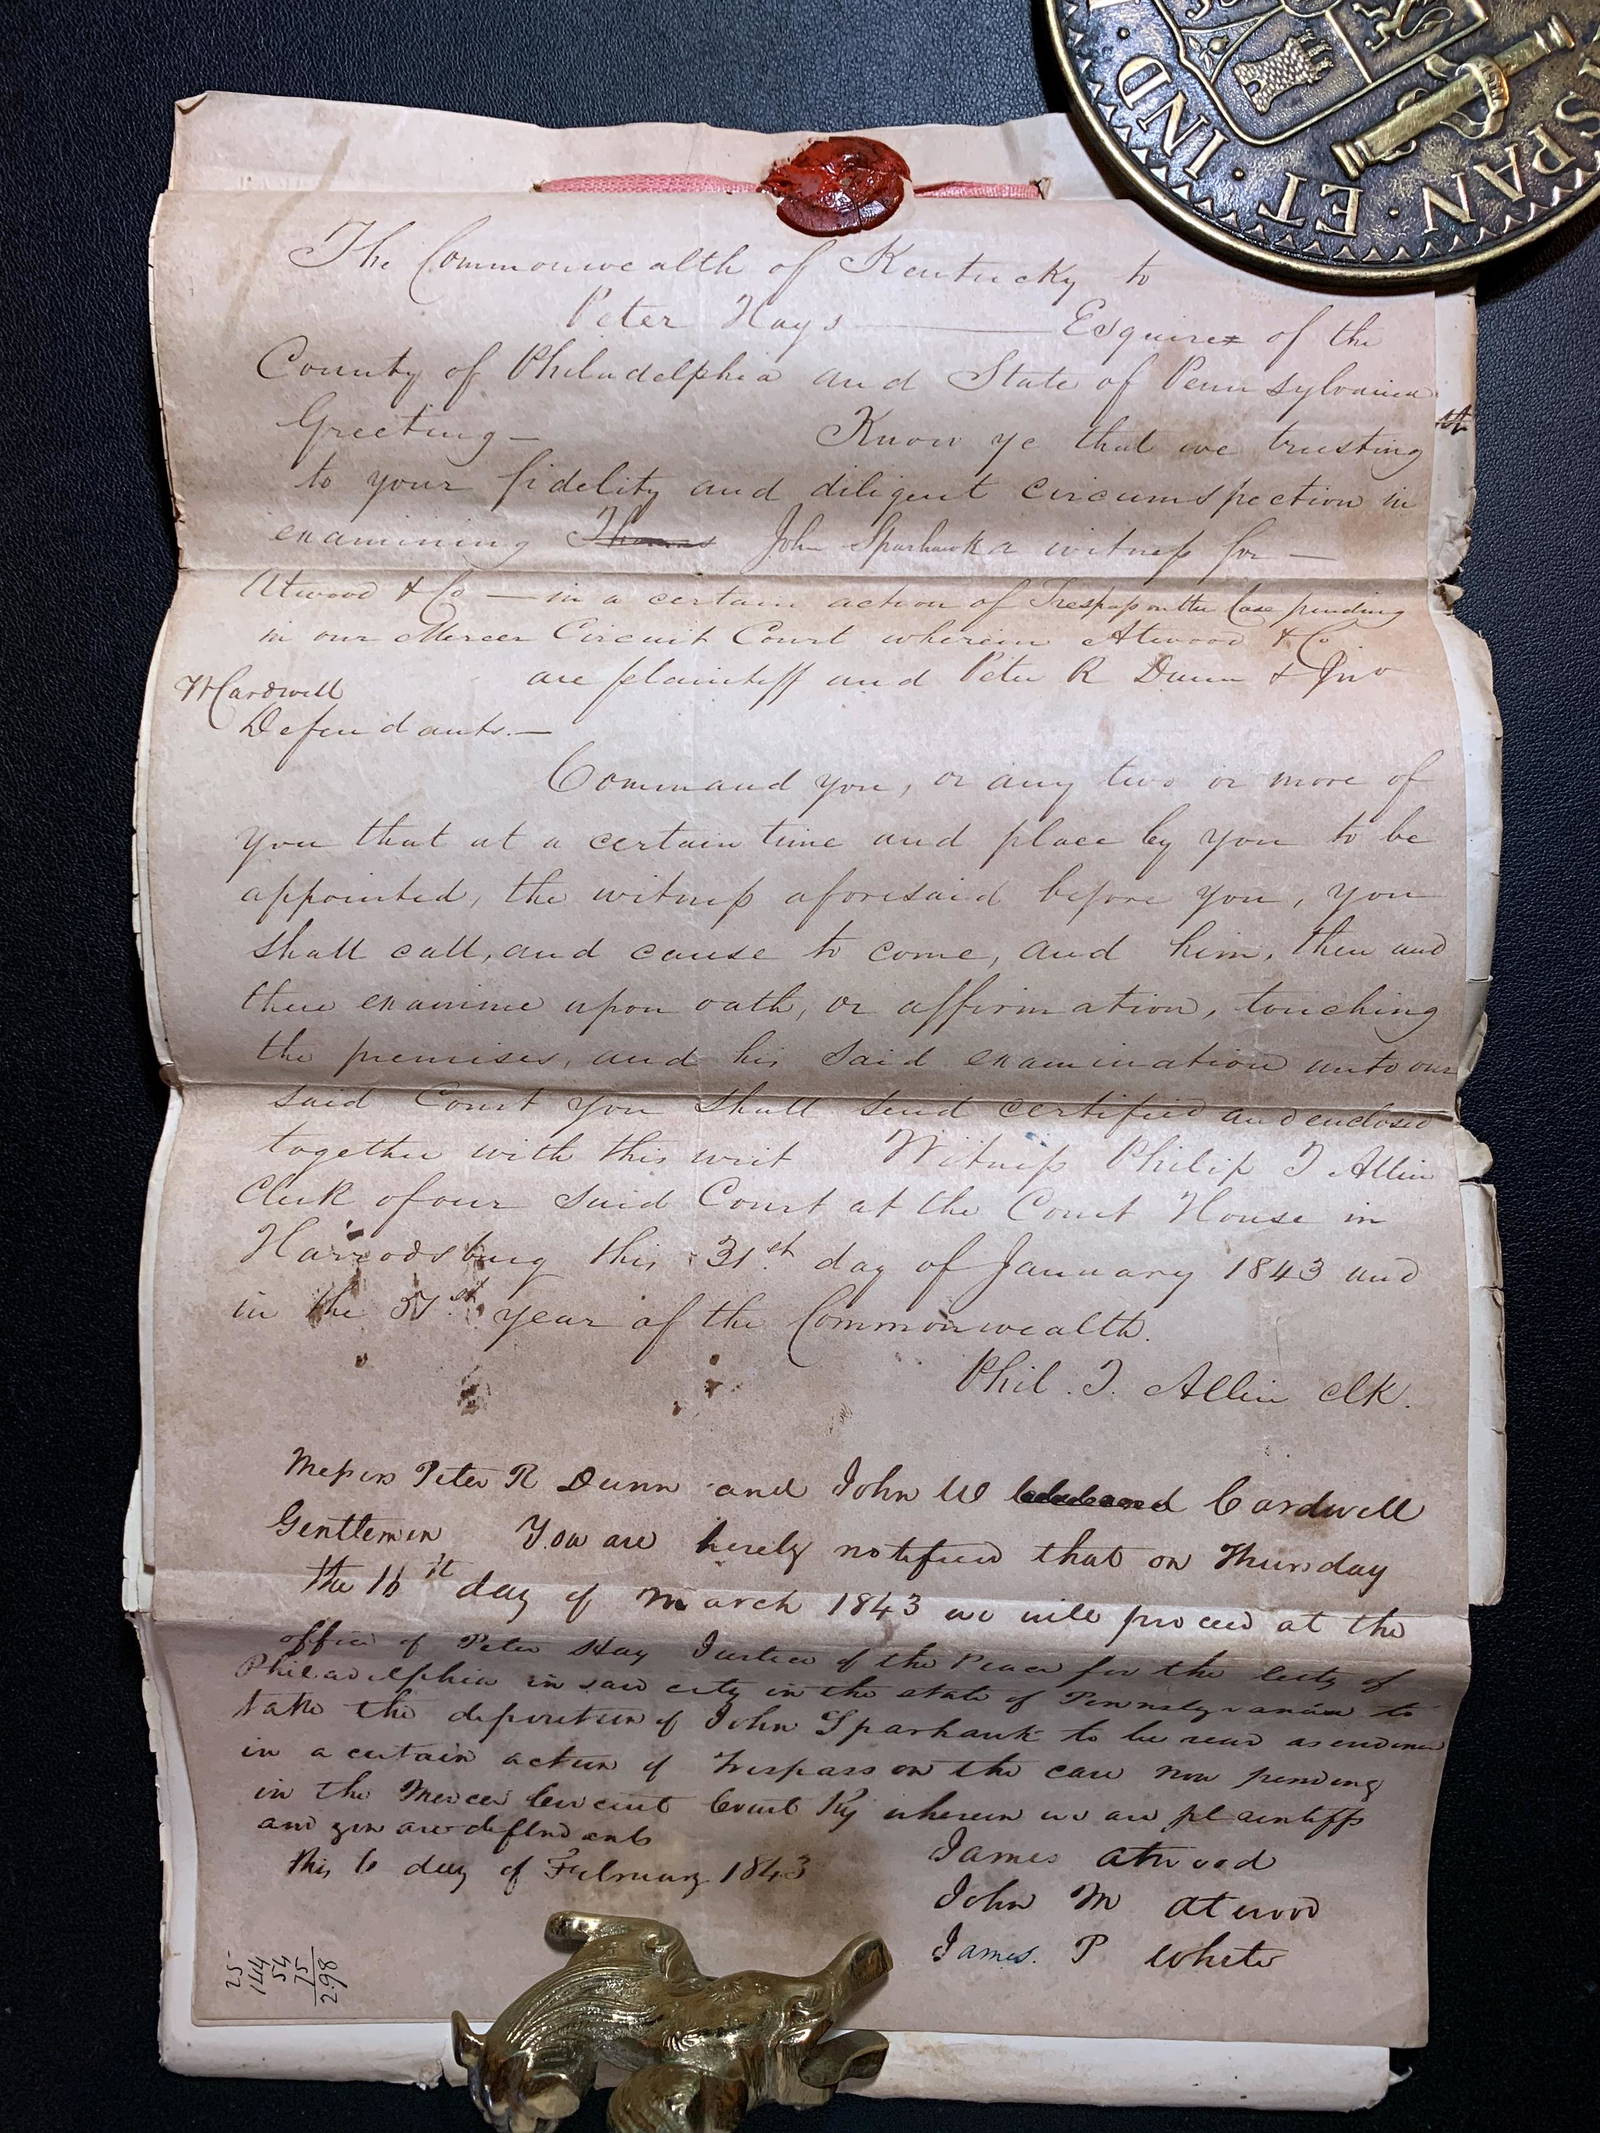 SPAN · ET · IND ·
The Commonwealth of Kentucky to
Peter Hays ——— Esquire of the
County of Philadelphia and State of Pennsylvania
Greeting — Know ye that we trusting
to your fidelity and diligent circumspection in
examining Thomas John Sparhawk a witness for —
Atwood & Co — in a certain action of Trespass on the Case pending
in our Mercer Circuit Court wherein Atwood & Co
are plaintiff and Peter R Dunn & Jno
W Cardwell
Defendants. —
Command you, or any two or more of
you that at a certain time and place by you to be
appointed, the witness aforesaid before you, you
shall call, and cause to come, and him, then and
there examine upon oath, or affirmation, touching
the premises, and his said examination unto our
said Court you shall send certified and enclosed
together with this writ Witness Philip T Allin
Clerk of our said Court at the Court House in
Harrodsburg this 31st day of January 1843 and
in the 51st year of the Commonwealth.
Phil. T. Allin clk.
Messrs Peter R Dunn and John W Cardwell
Gentlemen You are hereby notified that on Thursday
the 16th day of March 1843 we will proceed at the
office of Peter Hay Justice of the Peace for the City of
Philadelphia in said city in the state of Pennsylvania to
take the deposition of John Sparhawk to be read as evidence
in a certain action of trespass on the case now pending
in the Mercer Circuit Court Ky wherein we are plaintiffs
and you are defendants
this 6 day of February 1843
James Atwood
John M Atwood
James. P White
25
144
54
75
298